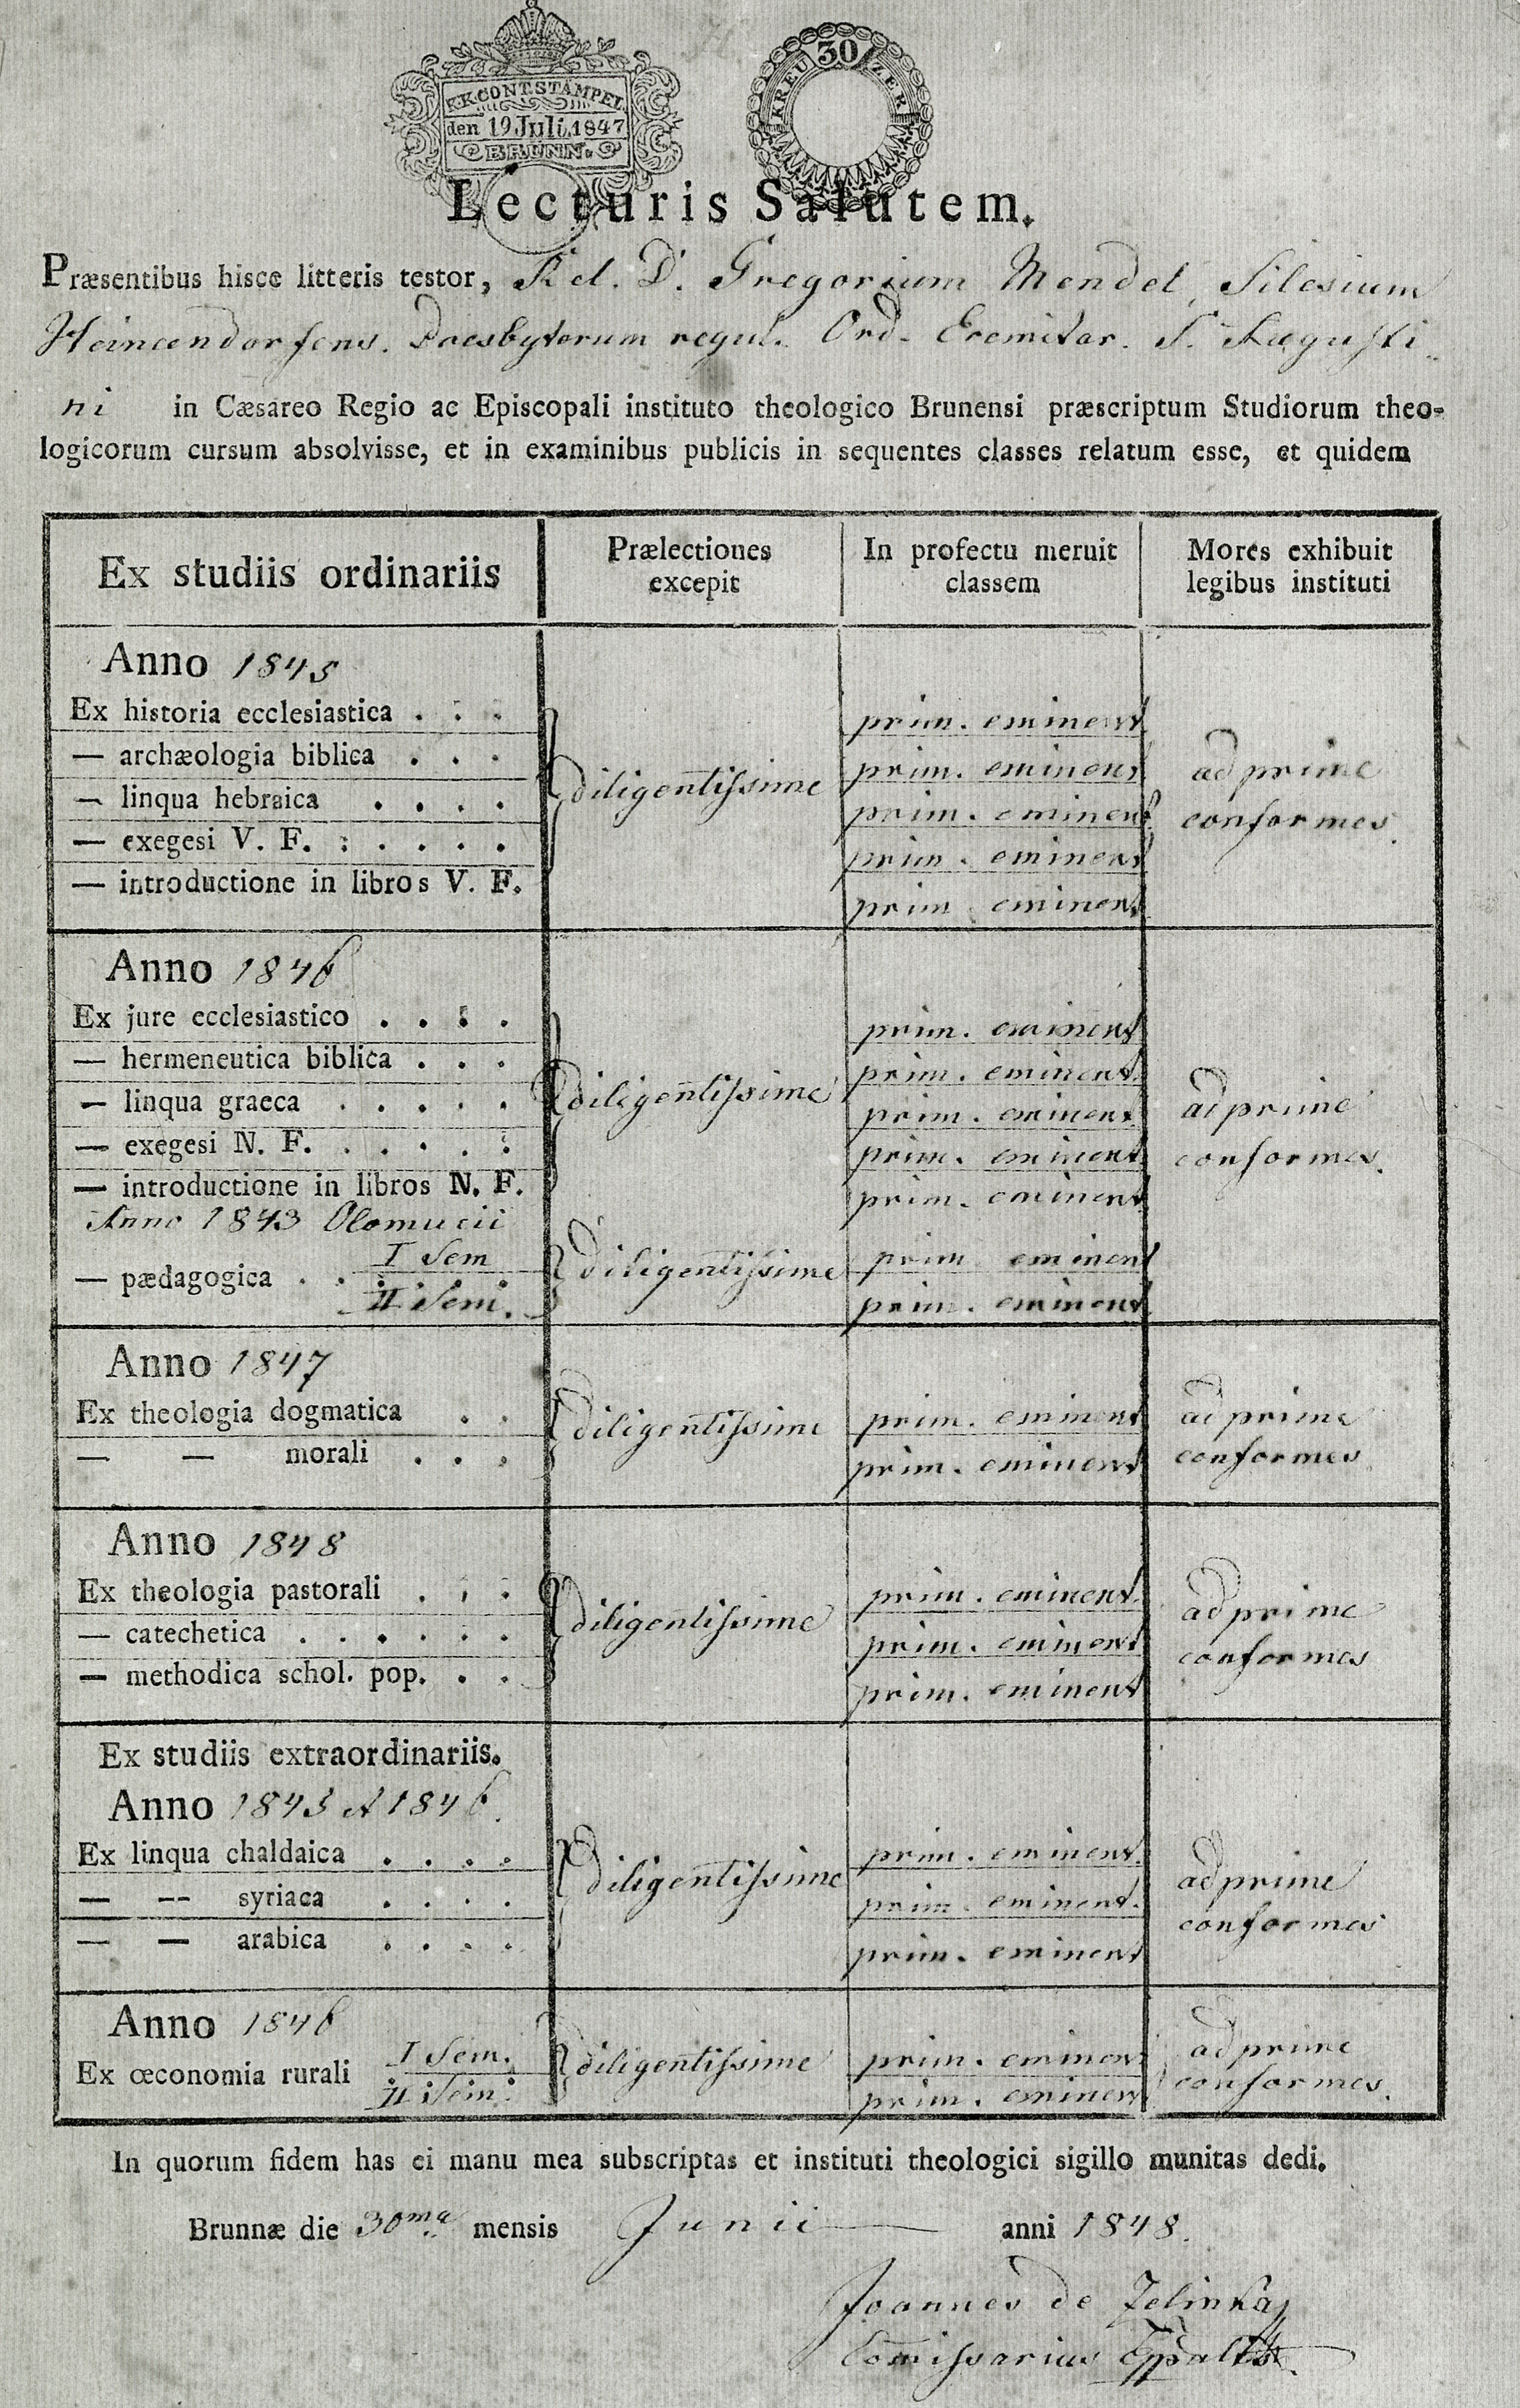 K.K.CONT.STÄMPEL
den 19 Juli.1847
BRÜNN.
30 KREUZER
Lecturis Salutem.
Præsentibus hisce litteris testor, Rel. D. Gregorium Mendel, Silesium
Heincendorfens. Presbyterum regul. Ord. Eremitar. S. Augusti-
ni in Cæsareo Regio ac Episcopali instituto theologico Brunensi præscriptum Studiorum theo-
logicorum cursum absolvisse, et in examinibus publicis in sequentes classes relatum esse, et quidem
Ex studiis ordinariis | Prælectiones excepit | In profectu meruit classem | Mores exhibuit legibus instituti
Anno 1845
Ex historia ecclesiastica . . . prim. eminent
— archæologia biblica . . . prim. eminent
diligentissime ad prime conformes.
— linqua hebraica . . . . prim. eminent
— exegesi V. F. : . . . . prim. eminent
— introductione in libros V. F. prim eminent
Anno 1846
Ex jure ecclesiastico . . . . prim. eminent
— hermeneutica biblica . . . prim. eminent.
— linqua graeca . . . . . diligentissime prim. eminent ad prime conformes.
— exegesi N. F. . . . . . prim. eminent
— introductione in libros N. F. prim. eminent
Anno 1843 Olomucii
— pædagogica . . I Sem diligentissime prim eminent
II Sem. prim. eminent
Anno 1847
Ex theologia dogmatica . . diligentissime prim. eminent ad prime conformes
— — morali . . . prim. eminent
Anno 1848
Ex theologia pastorali . . . prim. eminent.
— catechetica . . . . . . diligentissime prim. eminent ad prime conformes
— methodica schol. pop. . . prim. eminent
Ex studiis extraordinariis.
Anno 1845 et 1846.
Ex linqua chaldaica . . . . prim. eminent.
— — syriaca . . . . diligentissime prim. eminent. ad prime conformes
— — arabica . . . . prim. eminent
Anno 1846
Ex œconomia rurali I Sem. diligentissime prim. eminent ad prime conformes.
II Sem. prim. eminent
In quorum fidem has ei manu mea subscriptas et instituti theologici sigillo munitas dedi.
Brunnæ die 30ma mensis Junii anni 1848.
Joannes de Zelinka
Comissarius Eppalis